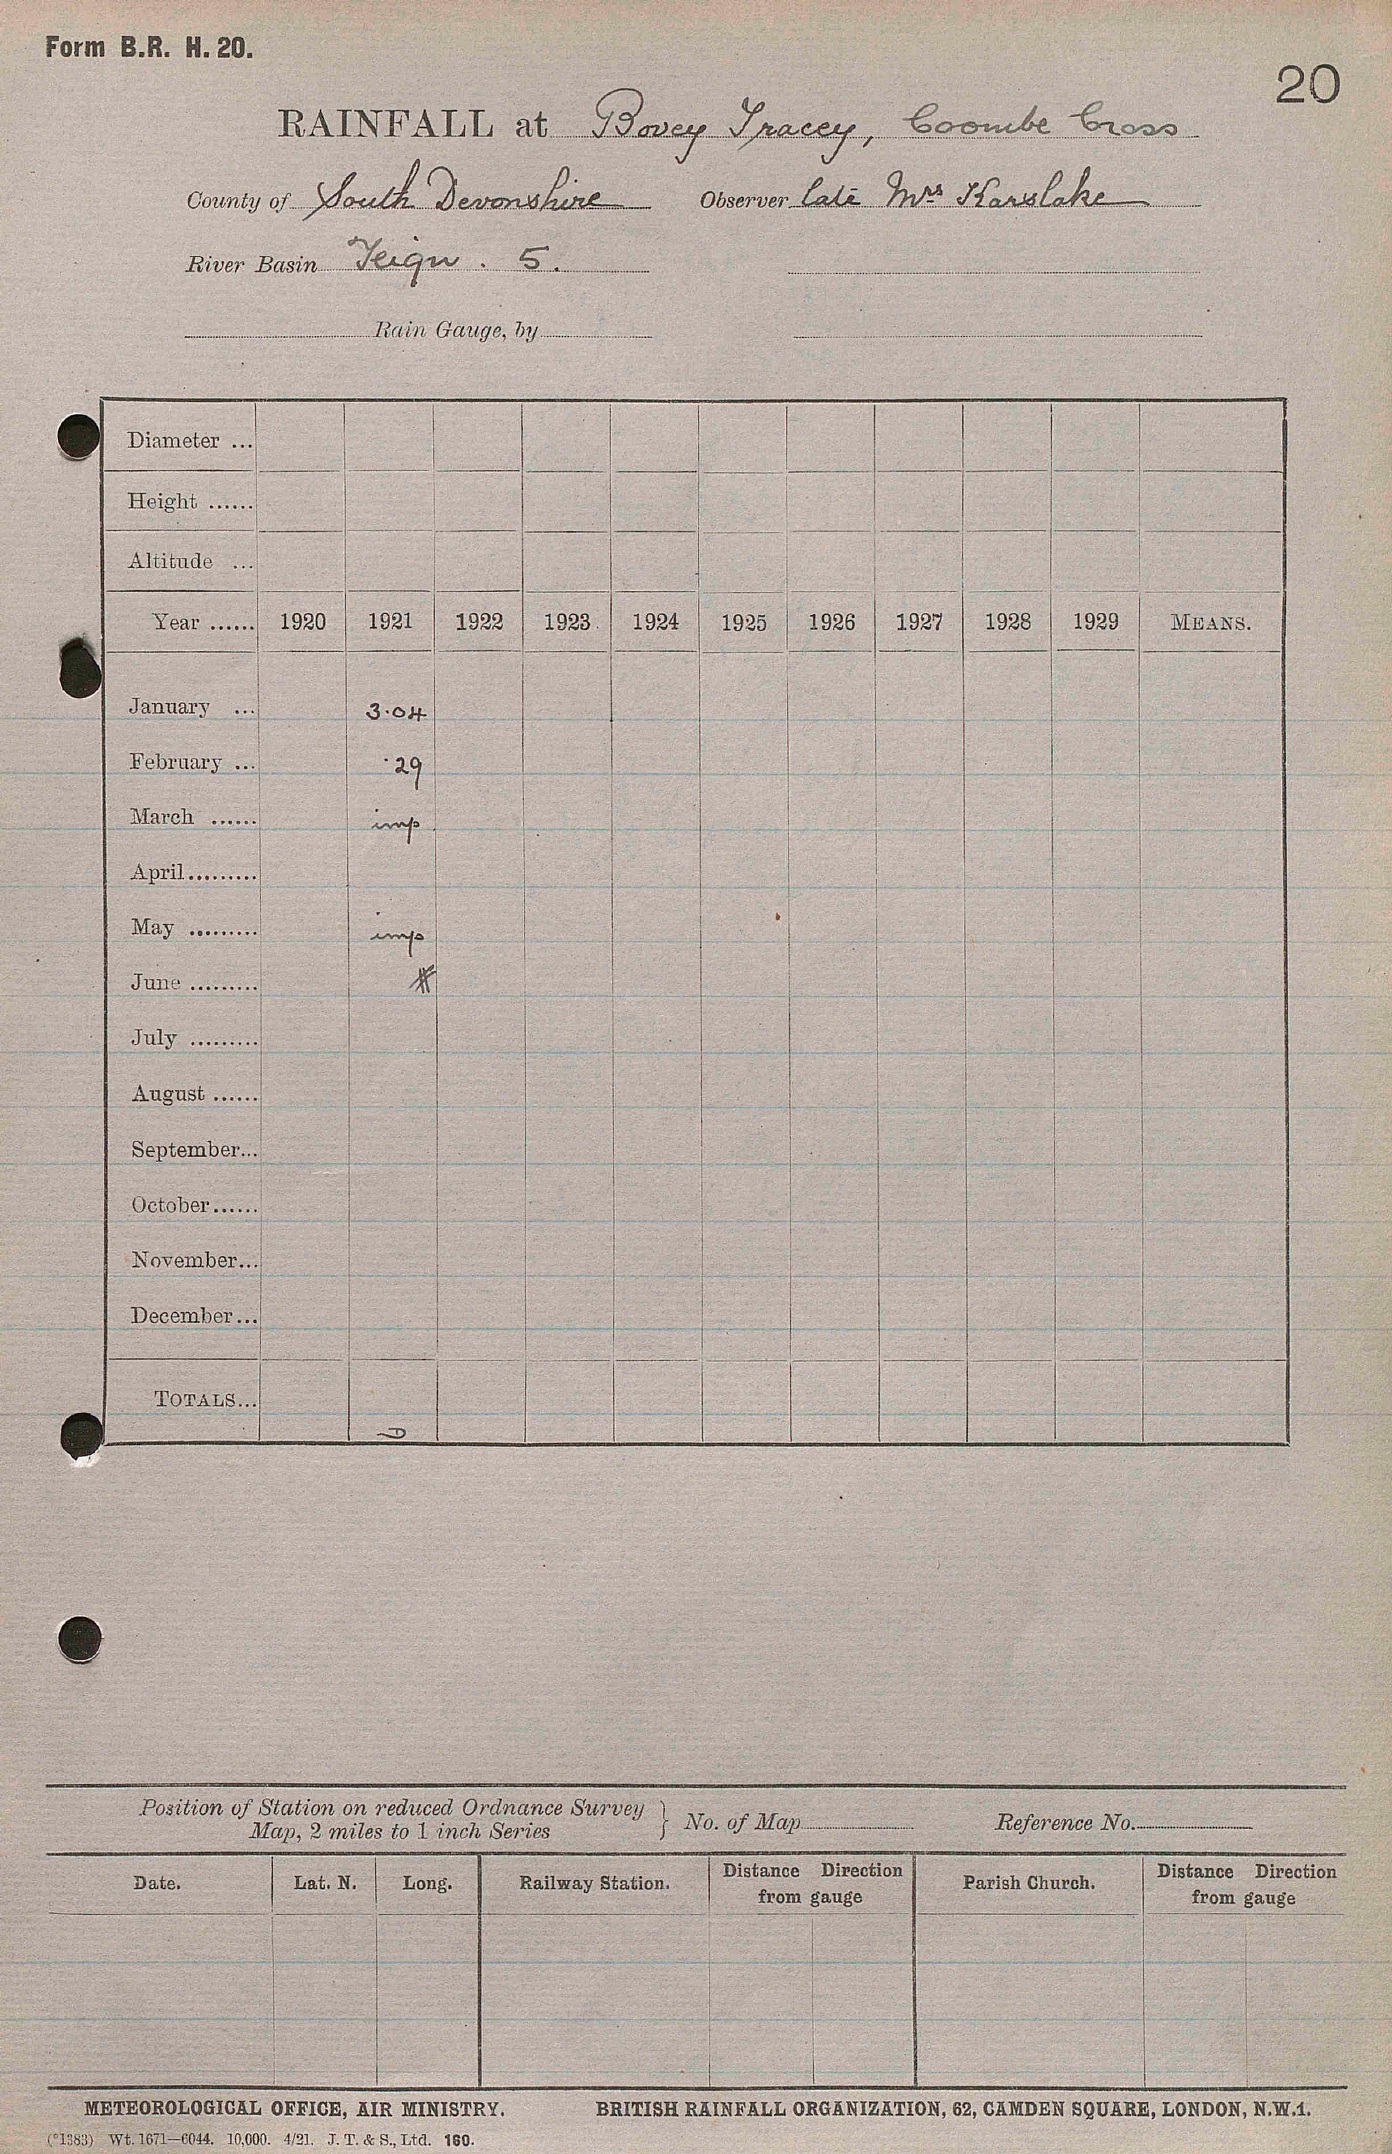 Form B.R. H. 20.
20
RAINFALL at Bovey Tracey, Coombe Cross
County of South Devonshire Observer late Mrs Karslake
River Basin Teign . 5.
Rain Gauge, by
Diameter ...
Height ......
Altitude ...
Year ...... 1920 1921 1922 1923 1924 1925 1926 1927 1928 1929 MEANS.
January ... 3·04
February ... ·29
March ...... imp
April.........
May ......... imp
June ......... #
July .........
August ......
September...
October......
November...
December...
TOTALS...
Position of Station on reduced Ordnance Survey
Map, 2 miles to 1 inch Series } No. of Map Reference No.
Date. Lat. N. Long. Railway Station. Distance Direction from gauge Parish Church. Distance Direction from gauge
METEOROLOGICAL OFFICE, AIR MINISTRY. BRITISH RAINFALL ORGANIZATION, 62, CAMDEN SQUARE, LONDON, N.W.1.
(*1383) Wt. 1671—6044. 10,000. 4/21. J. T. & S., Ltd. 160.